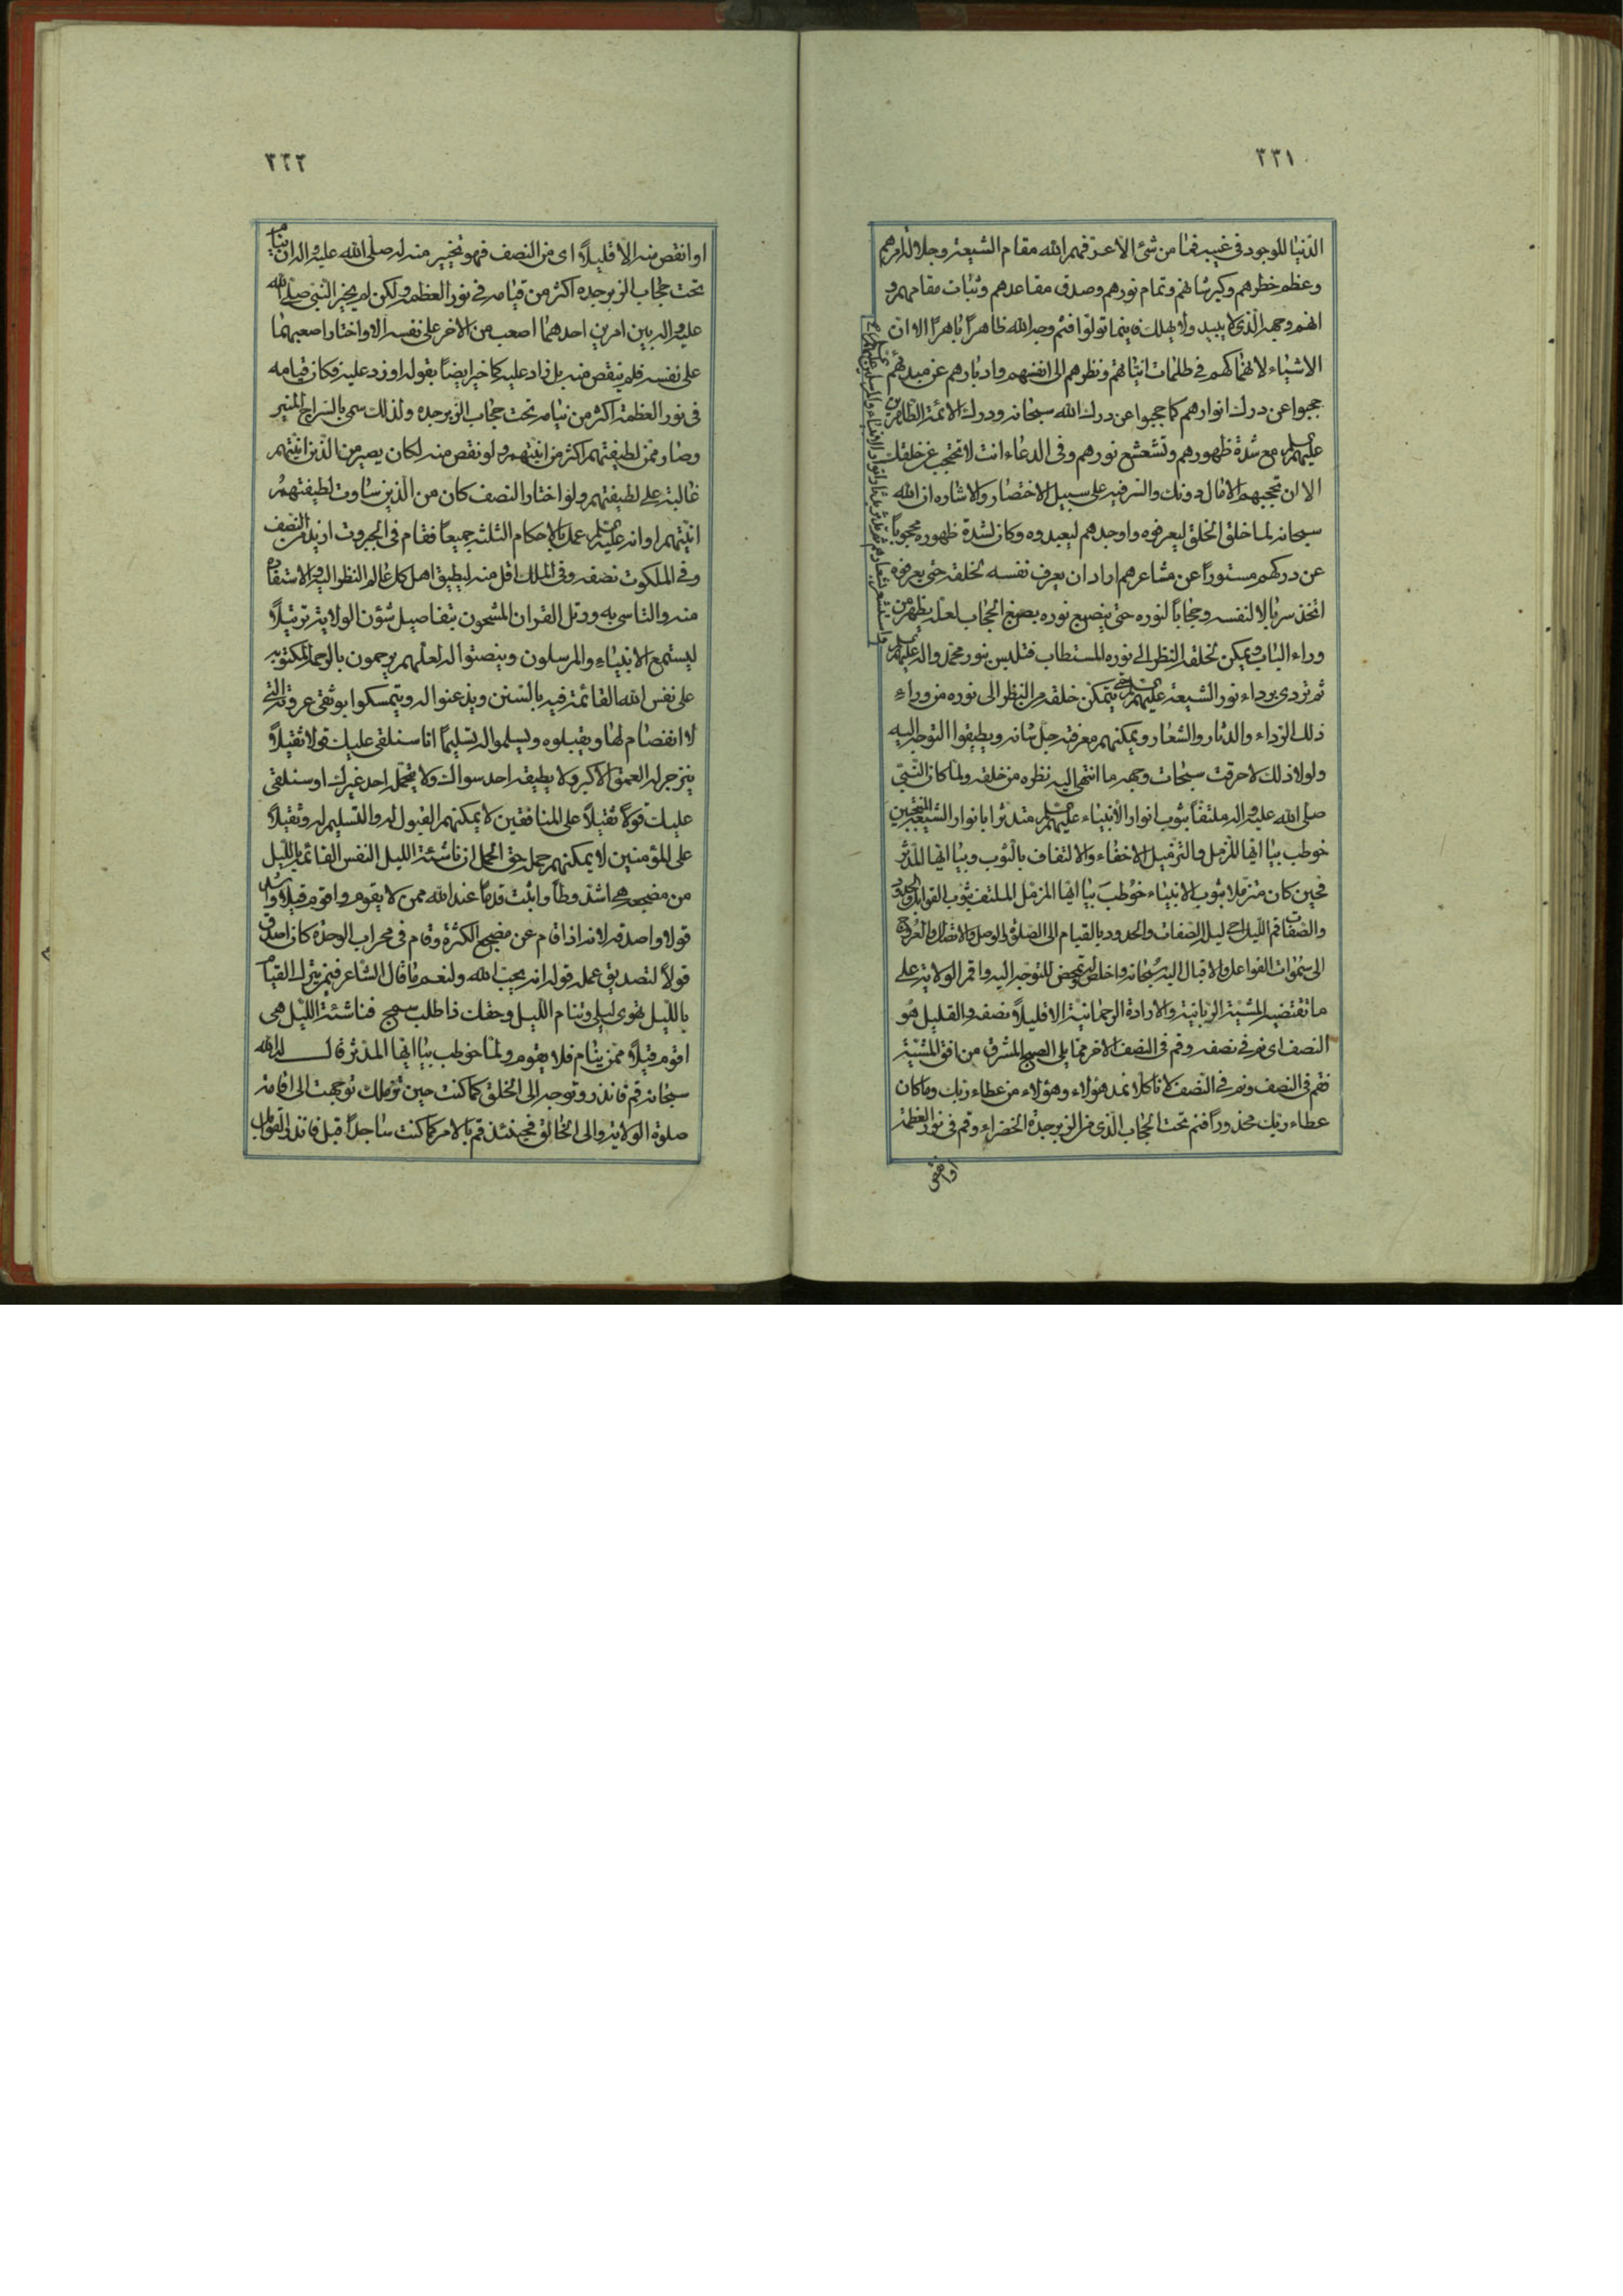 ٣٣١
الدنيا للوجود فى غيبه فما من شئ الا عرفهم الله مقام الشيعة وجلالة امرهم
وعظم خطرهم وكبر شانهم وتمام نورهم وصدق مقاعدهم وثبات مقامهم و
انهم وجهه الذى لا يبيد ولا يهلك فاينما تولوا فثم وجه الله ظاهراً باهراً الا ان
الاشياء لانهماكهم فى ظلمات انياتهم ونظرهم الى انفسهم وادبارهم عن مبدئهم
حجبوا عن درك انوارهم كما حجبوا عن درك الله سبحانه ودرك الائمة الطاهرين
عليهم السلم مع شدة ظهورهم وتشعشع نورهم وفى الدعاء انت لا تحتجب عن خلقك
الا ان تحجبهم الامال دونك والسر فيه على سبيل الاختصار والاشاره ان الله
سبحانه لما خلق الخلق ليعرفوه واوجدهم ليعبدوه وكان لشدة ظهوره محجوباً
عن دركهم مستوراً عن مشاعرهم اراد ان يعرف نفسه لخلقه حتى يعرفوه
اتخذ سربالا لنفسه وحجاباً لنوره حتى ينصبغ نوره بصبغ الحجاب لعله يظهر من
وراء الباب ويمكن لخلقه النظر الى نوره المستطاب فتلبس بنور محمد واله عليهم السلم
ثم تردى برداء نور الشيعة عليهم السلم حتى يتمكن خلقه من النظر الى نوره من وراء
ذلك الرداء والدثار والشعار ويمكنهم معرفته جل شانه ويطيقوا التوجه اليه
ولولا ذلك لاحرقت سبحات وجهه ما انتهى اليه نظره من خلقه ولما كان النبى
صلى الله عليه واله ملتفاً بثوب انوار الانبياء عليهم السلم متدثرا بانوار الشيعة المنتجبين
خوطب بيا ايها المزمل والتزميل الاخفاء والالتفاف بالثوب وبيا ايها المدثر
فحين كان متزملا بثوب الانبياء خوطب بيا ايها المزمل الملتف بثوب القوابل والحدود
والصفات قم الليل اى ليل الصفات والحدود بالقيام الى الصلوة والوصل والاتصال والعروج
الى سموات الفواعل والاقبال اليه سبحانه واخلص له وتمحض للتوجه اليه واقم الولاية على
ما تقتضيه المشية الربانية والارادة الرحمانية الا قليلاً نصفه والقليل هو
النصف اى نم فى نصفه وقم فى النصف الاخر مما يلى الصبح المشرق من افق المشية
فقم فى النصف ونم فى النصف لانا كلا نمد هؤلاء وهؤلاء من عطاء ربك وما كان
عطاء ربك محذوراً فنم تحت الحجاب الذى من الزبرجدة الخضراء وقم فى نور العظمة
او انقص
٣٣٢
او انقص منه الا قليلاً اى من النصف فهو تخيير منه له صلى الله عليه واله ان ينام
تحت حجاب الزبرجده اكثر من قيامه فى نور العظمة ولكن لم يخير النبى صلى الله
عليه واله بين امرين احدهما اصعب من الاخر على نفسه الا واختار اصعبهما
على نفسه فلم ينقص منه بل زاد عليه كما خير ايضاً بقوله او زد عليه فكان قيامه
فى نور العظمة اكثر من نيامه تحت حجاب الزبرجده ولذلك سمى بالسراج المنير
وصار ممن لطيفتهم اكثر من انيتهم ولو نقص منه لكان يصير من الذين انيتهم
غالبة على لطيفتهم ولو اختار النصف كان من الذين ساوت لطيفتهم
انيتهم او انه عليه السلم عمل بالاحكام الثلثة جميعاً فقام فى الجبروت ازيد من النصف
وفى الملكوت نصفه وفى الملك اقل منه ليطيق اهل كل عالم النظر اليه والاستفادة
منه والتاسى به ورتل القران المشحون بتفاصيل شؤن الولاية ترتيلاً
ليستمع الانبياء والمرسلون وينصتوا له لعلهم يرحمون بالرحمة المكتوبة
على نفس الله القائمة فيه بالسنن ويذعنوا له ويتمسكوا بوثقى عروته التى
لا انفصام لها ويقبلوه ويسلموا له تسليماً انا سنلقى عليك قولا ثقيلاً
ينزجر له العمق الاكبر ولا يطيقه احد سواك ولا يتحمل احد غيرك او سنلقى
عليك قولاً ثقيلاً على المنافقين لا يمكنهم القبول له والتسليم له وثقيلاً
على المؤمنين لا يمكنهم حمله حق الحمل ان ناشئة الليل النفس القائمة بالليل
من مضجعه هى اشد وطأ واثبت قدماً عند الله ممن لا يقوم واقوم قيلاً واسد
قولا واصدقه لانه اذا قام عن مضجع الكثرة وقام فى محراب الوحدة كان اصدق
قولاً لتصديق عمله قوله انه يحب الله ولنعم ما قال الشاعر فيمن يترك القيام
بالليل تهوى ليلى وتنام الليل وحقك ذا طلب سمج فناشئة الليل هى
اقوم قيلاً ممن ينام فلا يقوم ولما خوطب بيا ايها المدثر قال له الله
سبحانه قم فانذر وتوجه الى الخلق كما كنت حين تزملك توجهت الى اقامة
صلوة الولاية والى الخالق فحينئذ قم بالامر كما كنت ساجداً قبل فانذر القوابل